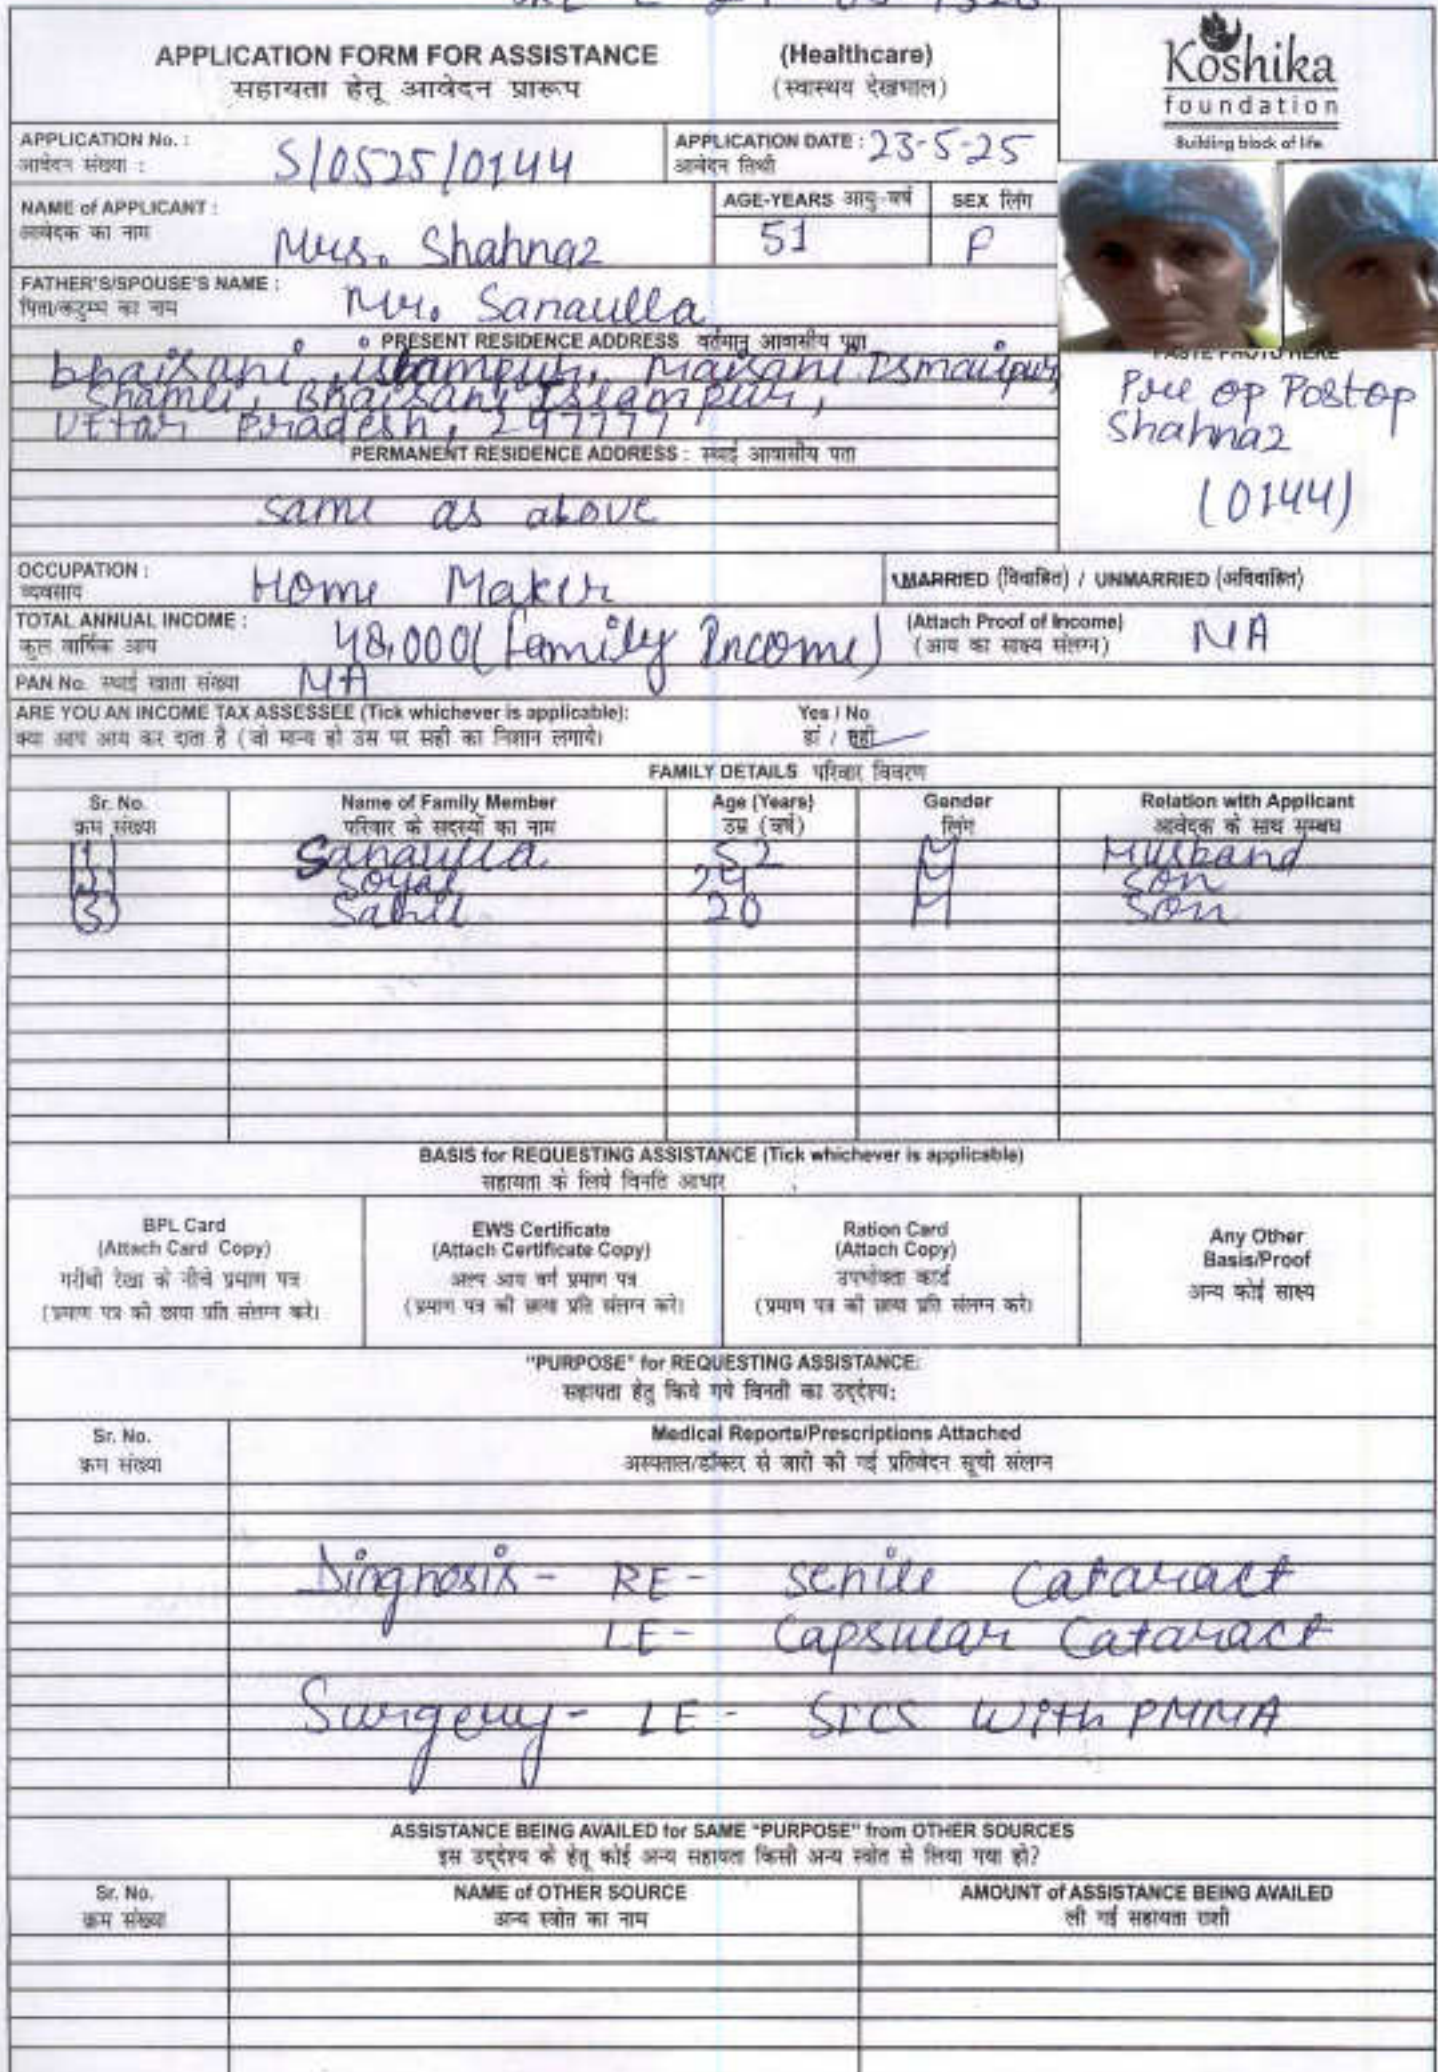 APPLICATION FORM FOR ASSISTANCE (Healthcare)
सहायता हेतू आवेदन प्रारूप (स्वास्थय देखभाल)
Koshika
foundation
Building block of life
APPLICATION No. : S/0525/0144 APPLICATION DATE : 23-5-25
आवेदन संख्या : आवेदन तिथी
NAME of APPLICANT : Mrs. Shahnaz AGE-YEARS आयु-वर्ष 51 SEX लिंग F
आवेदक का नाम
FATHER'S/SPOUSE'S NAME : Mr. Sanaulla
पिता/कटुम्ब का नाम
PRESENT RESIDENCE ADDRESS वर्तमान आवासीय पता
bhaisani islampur, Maisani Ismailpur,
Shamli, Bhaisani Islampur,
Uttar Pradesh, 247777
PASTE PHOTO HERE
Pre op Postop
Shahnaz
(0144)
PERMANENT RESIDENCE ADDRESS : स्थाई आवासीय पता
same as above
OCCUPATION : Home Maker MARRIED (विवाहित) / UNMARRIED (अविवाहित)
व्यवसाय
TOTAL ANNUAL INCOME : 48,000 (Family Income) (Attach Proof of Income) NA
कुल वार्षिक आय (आय का साक्ष्य संलग्न)
PAN No. स्थाई खाता संख्या NA
ARE YOU AN INCOME TAX ASSESSEE (Tick whichever is applicable): Yes / No
क्या आप आय कर दाता है (जो मान्य हो उस पर सही का निशान लगाये। हां / नही
FAMILY DETAILS परिवार विवरण
Sr. No. Name of Family Member Age (Years) Gender Relation with Applicant
क्रम संख्या परिवार के सदस्यों का नाम उम्र (वर्ष) लिंग आवेदक के साथ सम्बध
(1) Sanaulla 52 M Husband
(2) 24 M Son
(3) Sahil 20 M Son
BASIS for REQUESTING ASSISTANCE (Tick whichever is applicable)
सहायता के लिये विनति आधार
BPL Card
(Attach Card Copy)
गरीबी रेखा के नीचे प्रमाण पत्र
(प्रमाण पत्र की छाया प्रति संलग्न करे।
EWS Certificate
(Attach Certificate Copy)
अल्प आय वर्ग प्रमाण पत्र
(प्रमाण पत्र की छाया प्रति संलग्न करे।
Ration Card
(Attach Copy)
उपभोक्ता कार्ड
(प्रमाण पत्र की छाया प्रति संलग्न करे।
Any Other
Basis/Proof
अन्य कोई साक्ष्य
"PURPOSE" for REQUESTING ASSISTANCE:
सहायता हेतु किये गये विनती का उद्देश्य:
Sr. No. Medical Reports/Prescriptions Attached
क्रम संख्या अस्पताल/डॉक्टर से जारी की गई प्रतिवेदन सूची संलग्न
Dingnosis - RE - Senile Cataract
LE - Capsular Cataract
Surgery - LE - SICS With PMMA
ASSISTANCE BEING AVAILED for SAME "PURPOSE" from OTHER SOURCES
इस उद्देश्य के हेतू कोई अन्य सहायता किसी अन्य स्त्रोत से लिया गया हो?
Sr. No. NAME of OTHER SOURCE AMOUNT of ASSISTANCE BEING AVAILED
क्रम संख्या अन्य स्त्रोत का नाम ली गई सहायता राशी